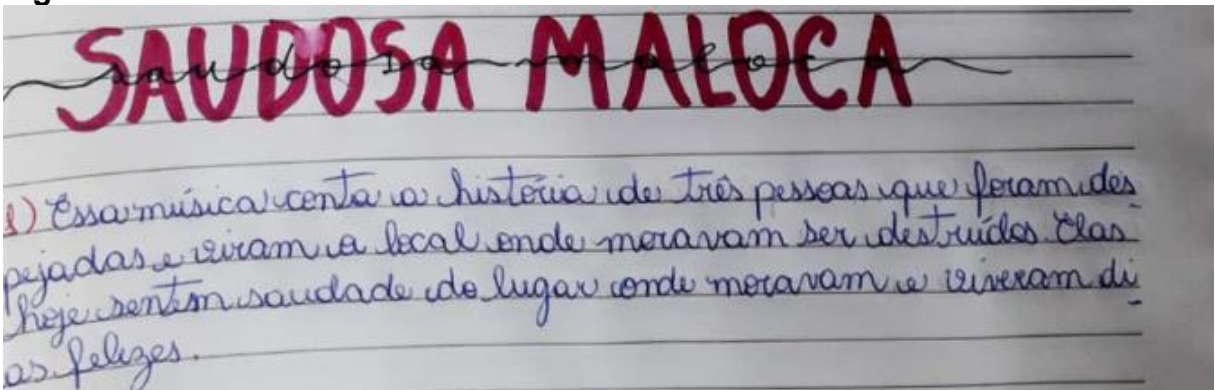 SAUDOSA MALOCA
saudosa maloca
1) Essa música conta a história de três pessoas que foram des
pejadas e viram o local onde moravam ser destruídos. Elas
hoje sentem saudade do lugar onde moravam e viveram di
as felizes.